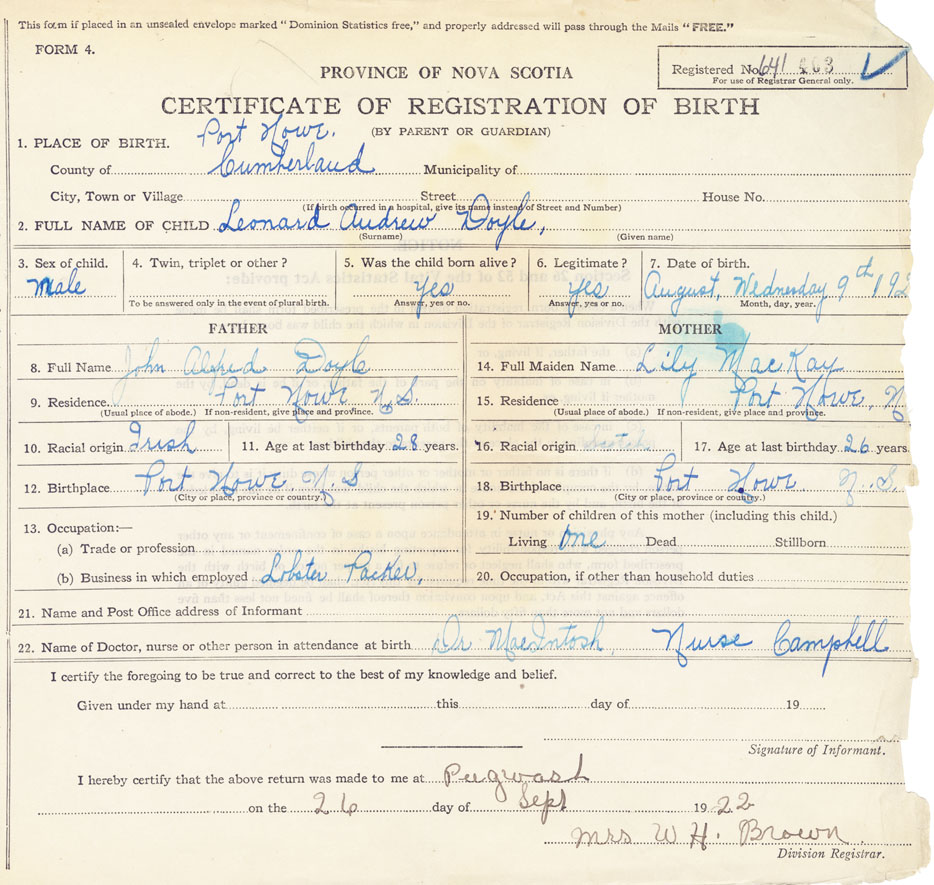 This form if placed in an unsealed envelope marked "Dominion Statistics free," and properly addressed will pass through the Mails "FREE."
FORM 4.
Registered No. 641 403
For use of Registrar General only.
PROVINCE OF NOVA SCOTIA
CERTIFICATE OF REGISTRATION OF BIRTH
(BY PARENT OR GUARDIAN)
1. PLACE OF BIRTH. Port Howe.
County of Cumberland Municipality of
City, Town or Village Street House No.
(If birth occurred in a hospital, give its name instead of Street and Number)
2. FULL NAME OF CHILD Leonard Andrew Doyle,
(Surname) (Given name)
3. Sex of child. 4. Twin, triplet or other? 5. Was the child born alive? 6. Legitimate? 7. Date of birth.
Male Yes Yes August, Wednesday 9th 192
To be answered only in the event of plural birth. Answer, yes or no. Answer, yes or no. Month, day, year.
FATHER MOTHER
8. Full Name John Alfred Doyle 14. Full Maiden Name Lily MacKay
9. Residence Port Howe N.S. 15. Residence Port Howe, N
(Usual place of abode.) If non-resident, give place and province. (Usual place of abode.) If non-resident, give place and province.
10. Racial origin Irish 11. Age at last birthday 28 years. 16. Racial origin Scotch 17. Age at last birthday 26 years
12. Birthplace Port Howe N.S 18. Birthplace Port Howe N.S.
(City or place, province or country.) (City or place, province or country.)
13. Occupation:— 19. Number of children of this mother (including this child.)
(a) Trade or profession Living One Dead Stillborn
(b) Business in which employed Lobster Packer, 20. Occupation, if other than household duties
21. Name and Post Office address of Informant
22. Name of Doctor, nurse or other person in attendance at birth Dr MacIntosh, Nurse Campbell
I certify the foregoing to be true and correct to the best of my knowledge and belief.
Given under my hand at this day of 19
Signature of Informant.
I hereby certify that the above return was made to me at Pugwash
on the 26 day of Sept 1922
Mrs W H. Brown
Division Registrar.